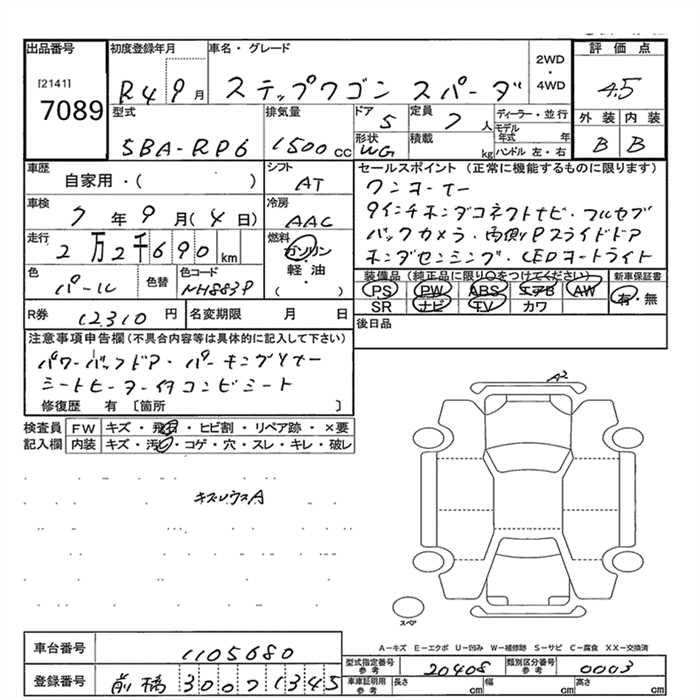 出品番号 初度登録年月 車名・グレード 2WD・4WD 評価点
[2141]
7089 R4 9月 ステップワゴン スパーダ 4.5
型式 排気量 ドア 定員 ディーラー・並行 外装 内装
5BA-RP6 1500cc 5 7人 モデル年式 年 B B
形状 WG 積載 kg ハンドル 左・右
車歴 シフト セールスポイント(正常に機能するものに限ります)
自家用・( ) AT ワンオーナー
車検 冷房 9インチホンダコネクトナビ・フルセグ
7年9月(4日) AAC バックカメラ・両側Pスライドドア
走行 燃料 ホンダセンシング・LEDヘッドライト
2万2千690km ガソリン・軽油・( )
色 色替 色コード 装備品(純正品に限り○をつけてください) 新車保証書
パール NH883P PS PW ABS エアB AW 有・無
SR ナビ TV カワ
R券 12310円 名変期限 月 日 後日品
注意事項申告欄(不具合内容等は具体的に記入して下さい)
パワーバックドア・パーキングソナー
シートヒーター付コンビシート
修復歴 有 〔箇所 〕
検査員 FW キズ・飛石・ヒビ割・リペア跡・×要
記入欄 内装 キズ・汚れ・コゲ・穴・スレ・キレ・破レ
A2
スペア
A-キズ E-エクボ U-凹み W-補修跡 S-サビ C-腐食 XX-交換済
車台番号 1105680 型式指定番号 参考 20408 類別区分番号 参考 0003
登録番号 前橋 300 1345 車庫証明用 参考 長さ cm 幅 cm 高さ cm